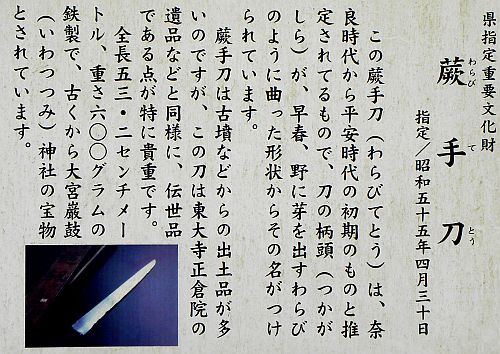 県指定重要文化財
蕨手刀
わらび て とう
指定／昭和五十五年四月三十日
この蕨手刀（わらびてとう）は、奈
良時代から平安時代の初期のものと推
定されてるもので、刀の柄頭（つかが
しら）が、早春、野に芽を出すわらび
のように曲った形状からその名がつけ
られています。
蕨手刀は古墳などからの出土品が多
いのですが、この刀は東大寺正倉院の
遺品などと同様に、伝世品
である点が特に貴重です。
全長五三・二センチメー
トル、重さ六〇〇グラムの
鉄製で、古くから大宮巌鼓
（いわつつみ）神社の宝物
とされています。